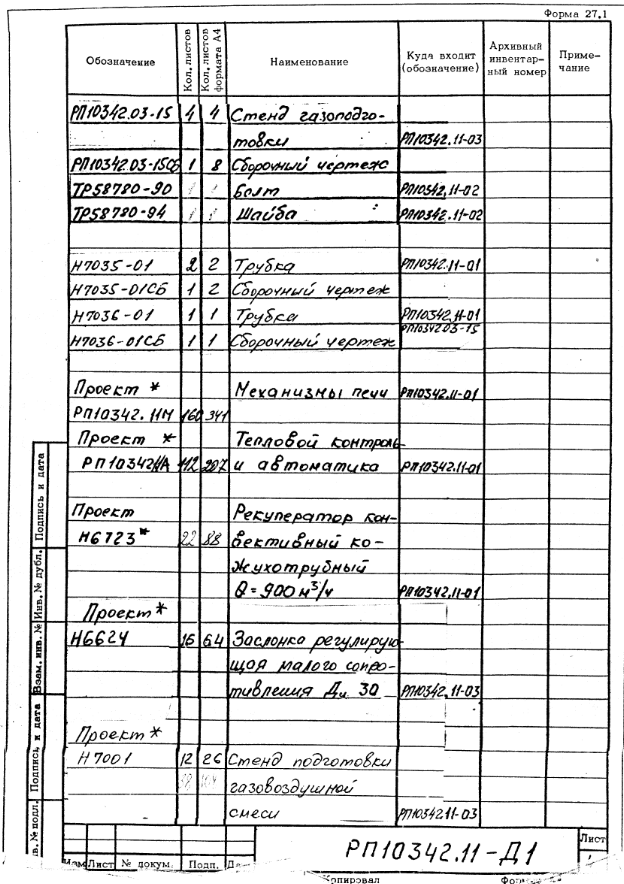 Форма 27.1
Обозначение Кол. листов Кол. листов формата А4 Наименование Куда входит (обозначение) Архивный инвентарный номер Примечание
РП10342.03-15 4 4 Стенд газоподго-
товки РП10342.11-03
РП10342.03-15СБ 1 8 Сборочный чертеж
ТР58780-90 Болт РП10342.11-02
ТР58780-94 Шайба РП10342.11-02
Н7035-01 2 2 Трубка РП10342.11-01
Н7035-01СБ 1 2 Сборочный чертеж
Н7036-01 1 1 Трубка РП10342.11-01
РП10342.03-15
Н7036-01СБ 1 1 Сборочный чертеж
Проект * Механизмы печи РП10342.11-01
РП10342.11М 160 341
Проект * Тепловой контроль
РП10342.11А 112 207 и автоматика РП10342.11-01
Проект Рекуператор кон-
Н6723* 22 88 вективный ко-
жухотрубный
Q=900 м³/ч РП10342.11-01
Проект *
Н6624 16 64 Заслонка регулирую-
щая малого сопро-
тивления Ду 30 РП10342.11-03
Проект *
Н7001 12 26 Стенд подготовки
газовоздушной
смеси РП10342.11-03
Подпись и дата
Инв. № дубл.
Взам. инв. №
Подпись и дата
в. № подл.
РП10342.11-Д1
Лист
Изм Лист № докум. Подп. Да
Копировал Форм